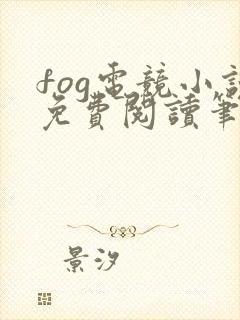 fog電競小說
免費閱讀筆
景汐